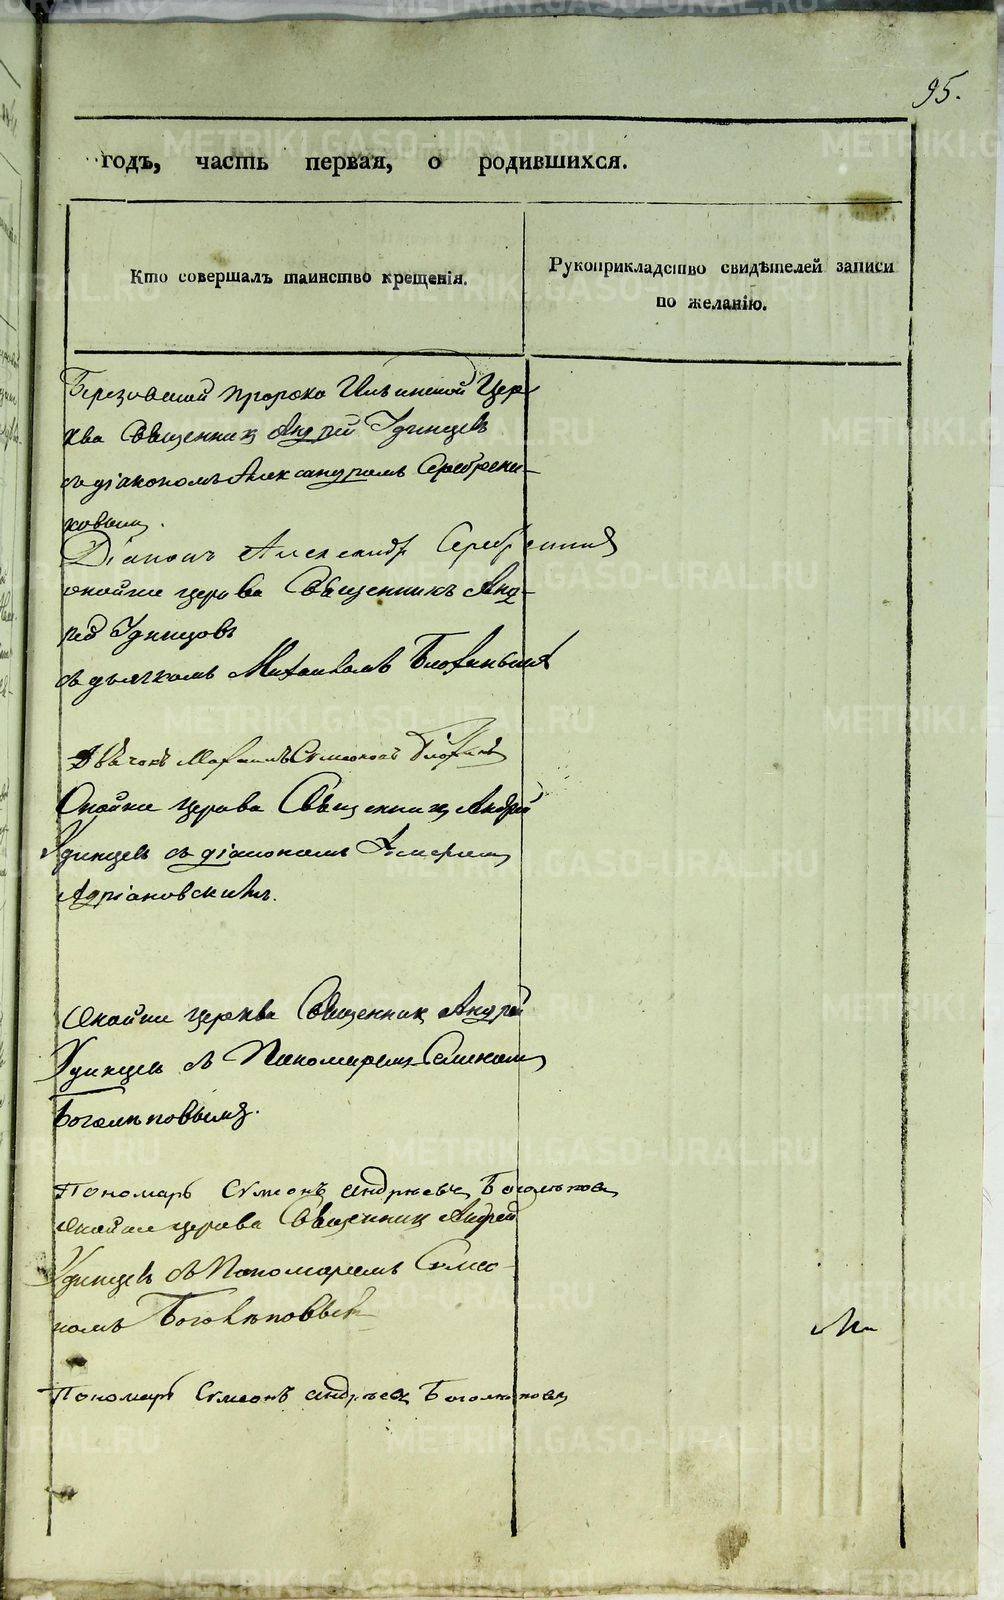 95.
годъ, часть первая, о родившихся.
Кто совершалъ таинство крещенія.
Рукоприкладство свидѣтелей записи
по желанію.
Березовской пророко Ильинской Цер-
кви Священник Андрей Удинцев
съ діакономъ Александромъ Серебрени-
ковым.
Діаконъ Александр
оной же церкви Священникъ Анд-
рей Удинцовъ
съ дьячкомъ Михаиломъ
Дьячокъ Михаилъ
Оной же церкви Священник Андрей
Удинцев съ діакономъ
Адріановскимъ.
Оной же церкви Священник Андрей
Удинцев съ Пономарем Симеоном
Боголѣповымъ.
Пономарь Сѵмеонъ Андрѣевъ Боголѣпов
Оной же церкви Священник Андрей
Удинцев съ Пономаремъ Сѵмео-
номъ Боголѣповым
Пономарь Сѵмеонъ Андрѣев Боголѣпов
METRIKI.GASO-URAL.RU